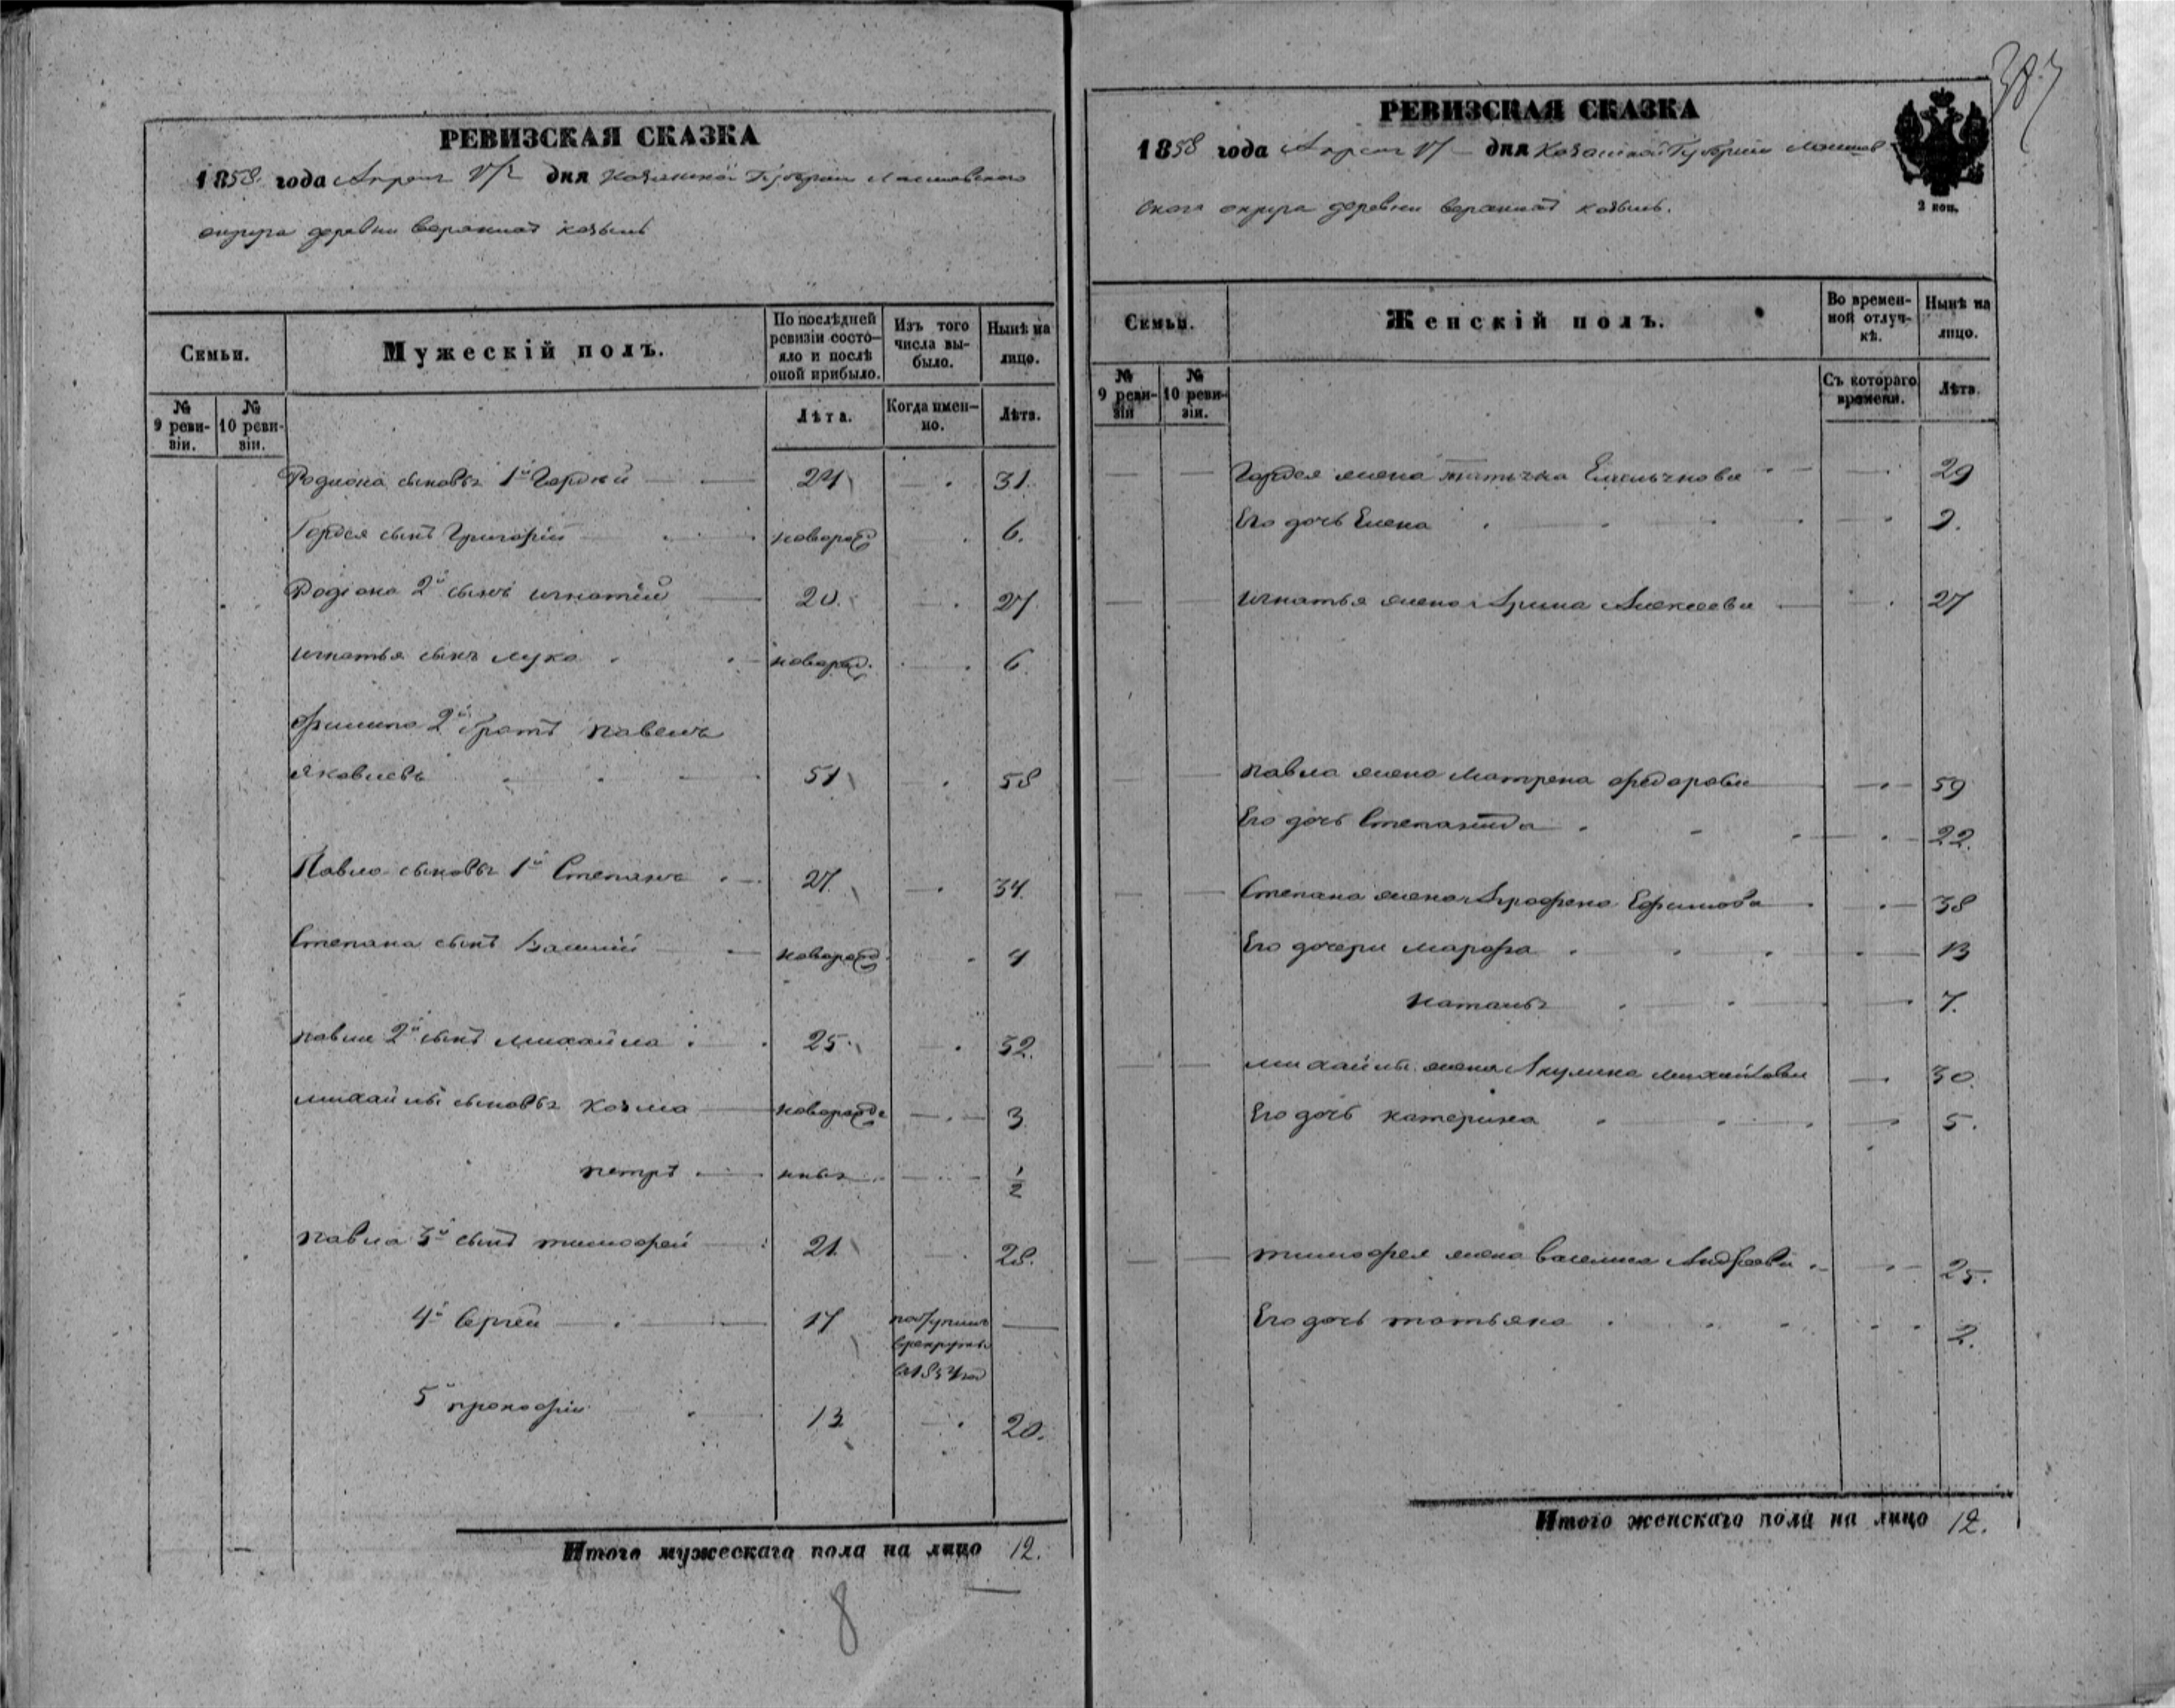 РЕВИЗСКАЯ СКАЗКА
1858 года Апреля дня Казанской Губернии Лаишевскаго
округа деревни
Семьи.
Мужескій полъ.
По послѣдней ревизіи состояло и послѣ оной прибыло.
Изъ того числа выбыло.
Нынѣ на лицо.
№ 9 ревизіи.
№ 10 ревизіи.
Лѣта.
Когда имен-но.
Лѣта.
Родиона сыновья 1й Гордей 24 31.
Гордея сынъ Григорій новорожд 6.
Родiона 2й сынъ игнатій 20. 27.
игнатья сынъ лука новорожд. 6
Филипа 2й братъ павелъ
Яковлевъ 51 58
Павла сыновья 1й Степанъ 27. 34.
Степана сынъ Василій новорожд. 4
павла 2й сынъ михайла 25. 32.
михайлы сыновья козма новорожде 3
петръ нныя 1/2
павла 3й сынъ тимофей 21. 28.
4й Сергей 17 поступилъ
в рекруты
в 1854 год
5й прокофiй 13 20.
Итого мужескаго пола на лицо 12.
8
387
РЕВИЗСКАЯ СКАЗКА
1858 года Апреля дня Казанской Губернии Лаишев
скаго округа деревни
2 коп.
Семьи.
Женскій полъ.
Во времен-ной отлуч-кѣ.
Нынѣ на лицо.
№ 9 ревизіи
№ 10 ревизіи.
Съ котораго времени.
Лѣта.
Гордея жена 29
Его дочь Елена 2.
игнатья жена Арина Алексеева 27
павла жена Матрена Федорова 59
Его дочь Степанида 22.
Степана жена Аграфена Ефимова 38
Его дочери марфа 13
наталья 7.
михайлы жена Акулина михайлова 30.
Его дочь катерина 5.
тимофея жена Василиса Андреева 25.
Его дочь татьяна 2.
Итого женскаго пола на лицо 12.